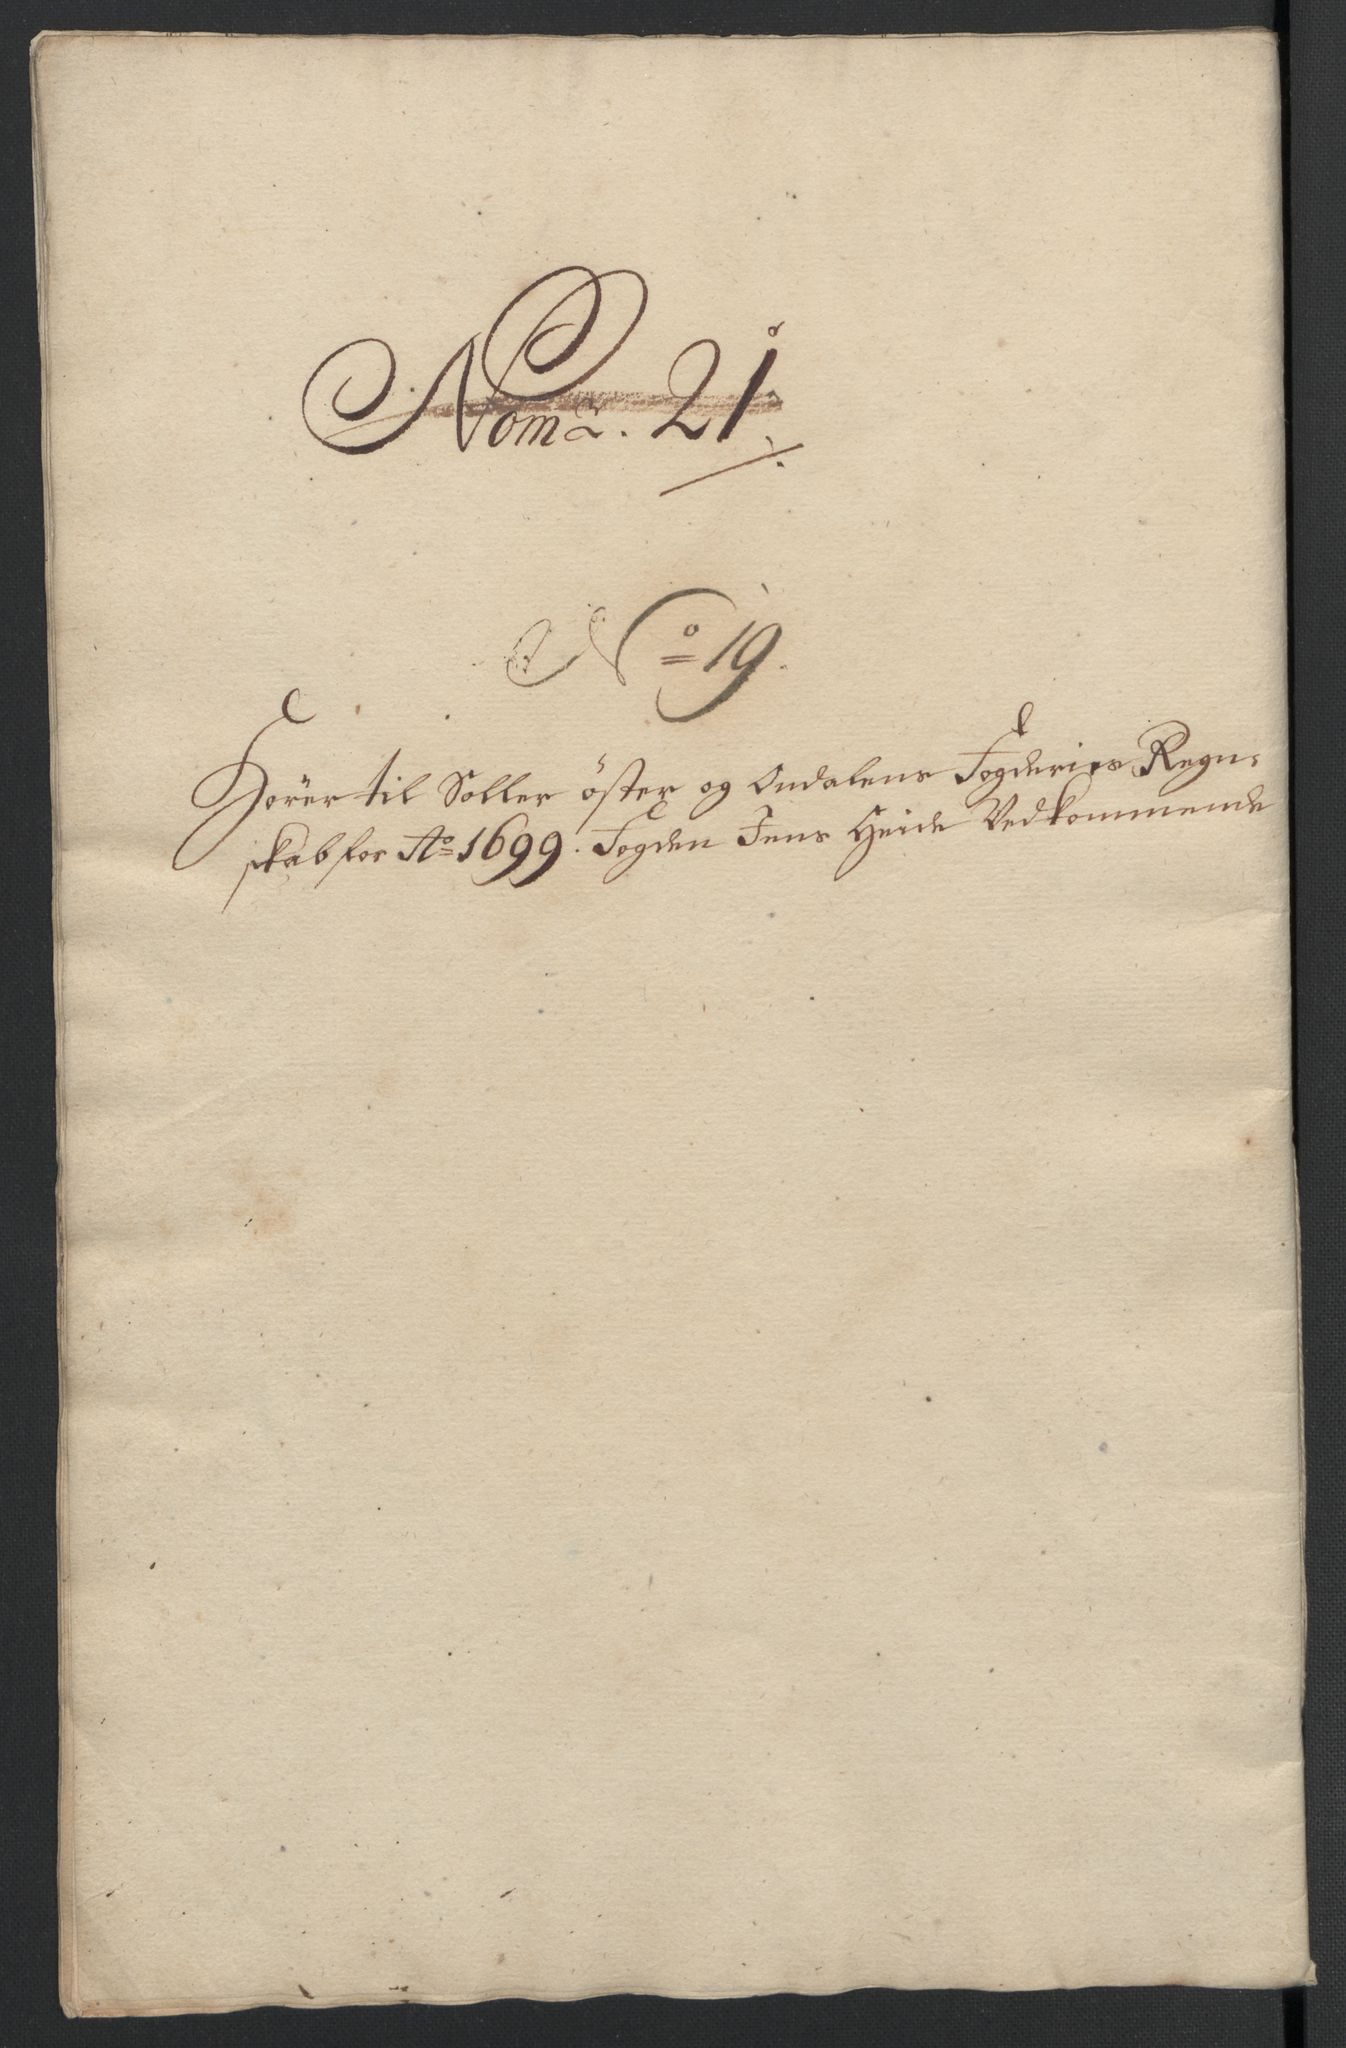 Nom2. 21
No 19.
Hörer til Soller öster og Ondalens Fogderies Regn-
skab for Ao 1699. Fogden Jens Heide Vedkommende